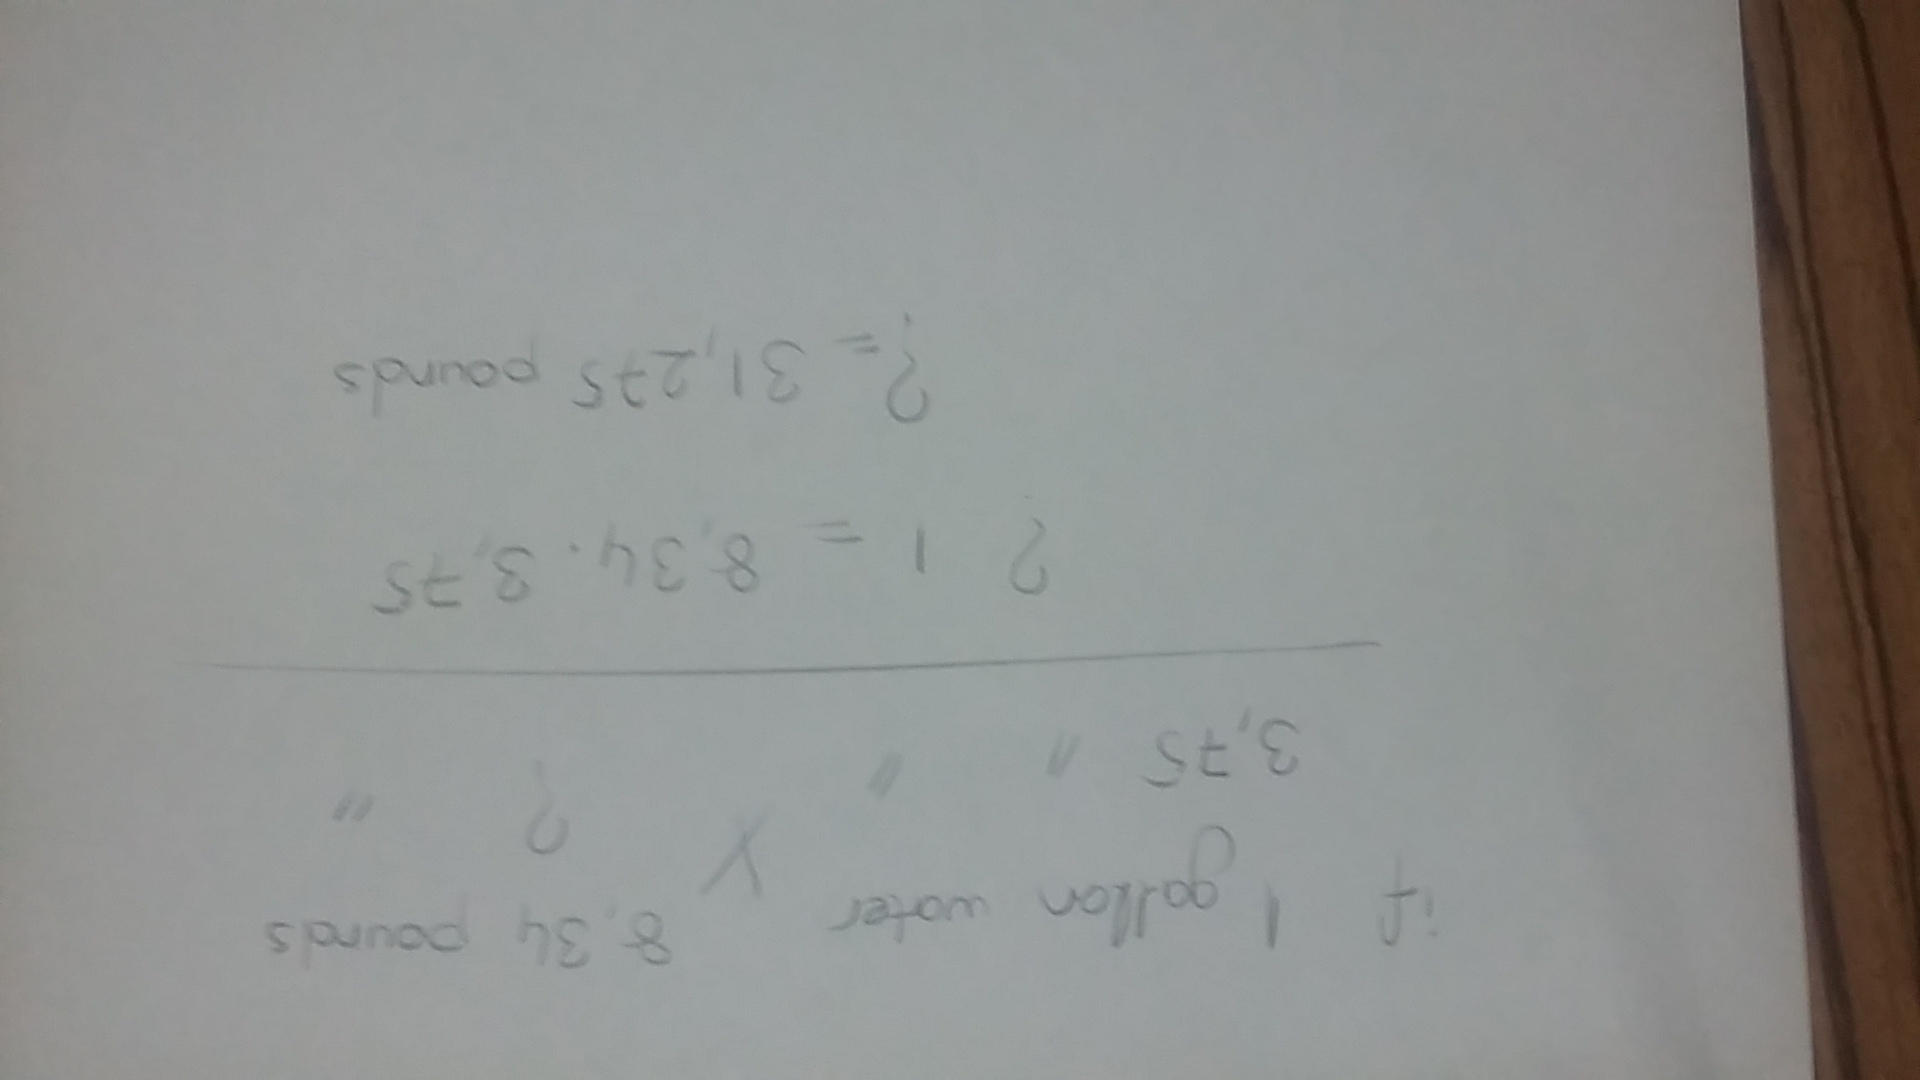 if 1 gallon water 8,34 pounds
3,75 " " X ? "
? 1 = 8,34 . 3,75
? = 31,275 pounds